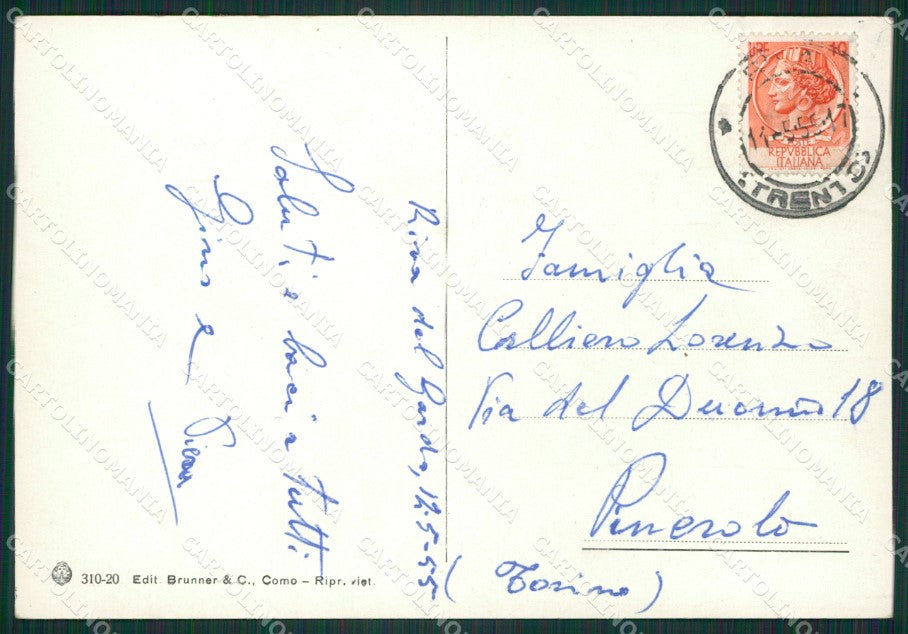 LIRE 10
POSTE
REPVBBLICA
ITALIANA
11-5-55-17
(TRENTO)
Riva del Garda, 12-5-55
Saluti e baci a tutti
Gino e
Famiglia
Calliero Lorenzo
Via del Duomo 18
Pinerolo
(Torino)
310-20 Edit. Brunner & C., Como – Ripr. viet.
CARTOLINOMANIA